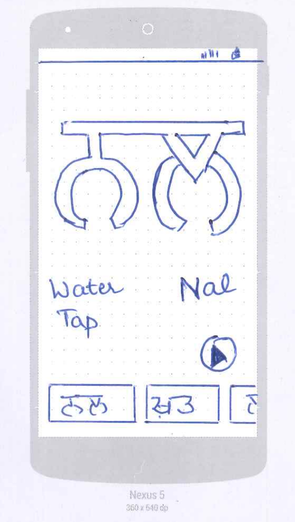 ਨਲ
Water Nal
Tap
ਨਲ ਖ਼ਤ
Nexus 5
360 x 640 dp